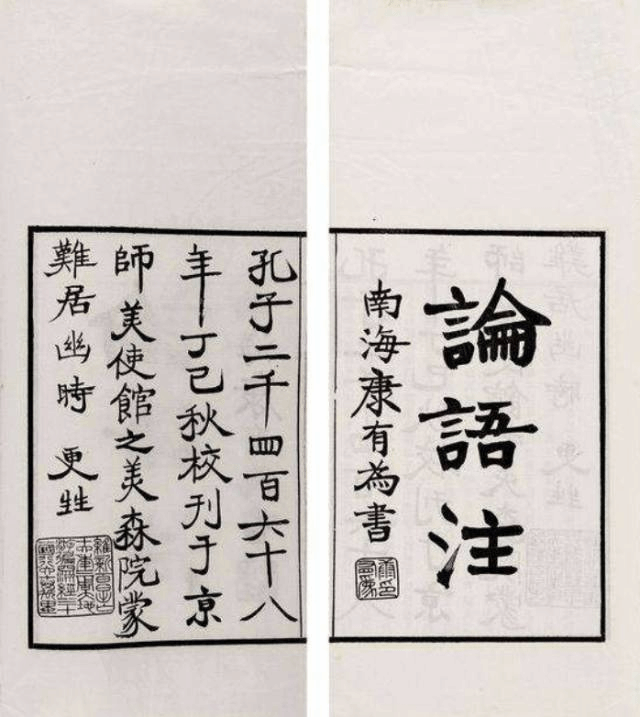 論語注
南海康有為書
孔子二千四百六十八
年丁巳秋校刊于京
師美使館之美森院蒙
難居幽時 更甡